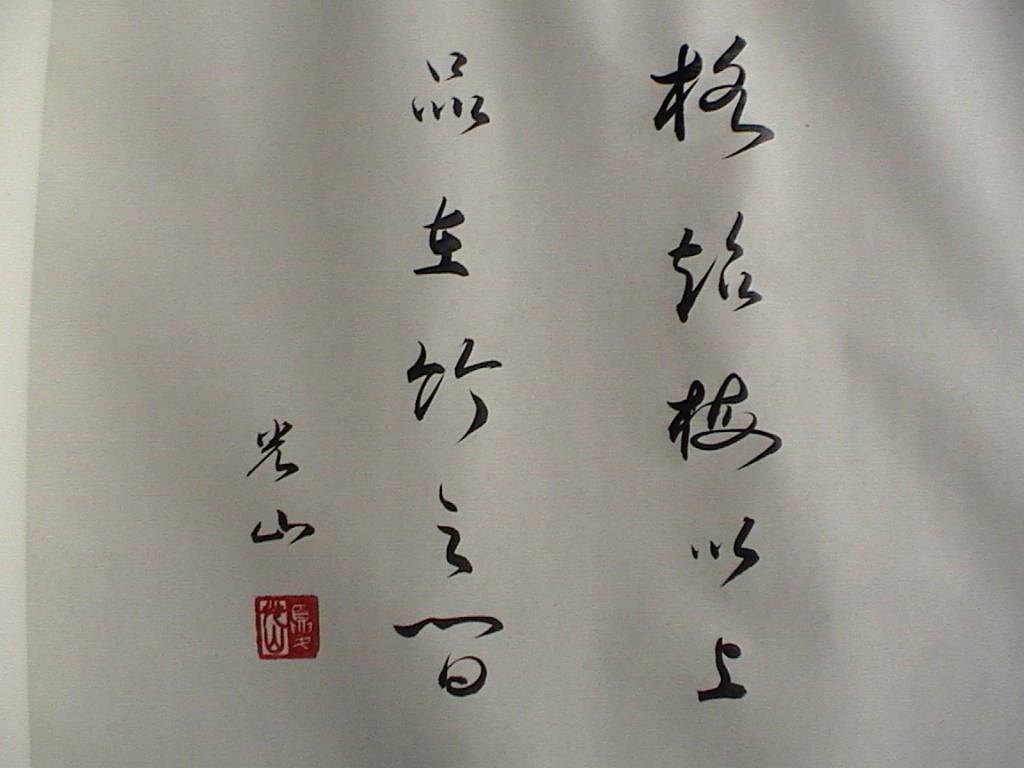 格超梅以上
品在竹之間
光山